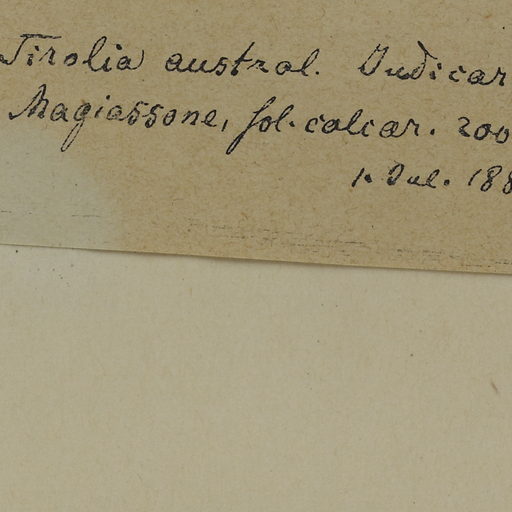 Tirolia austral. Judicar
Magiassone, sol. calcar. 200
1. Jul. 188